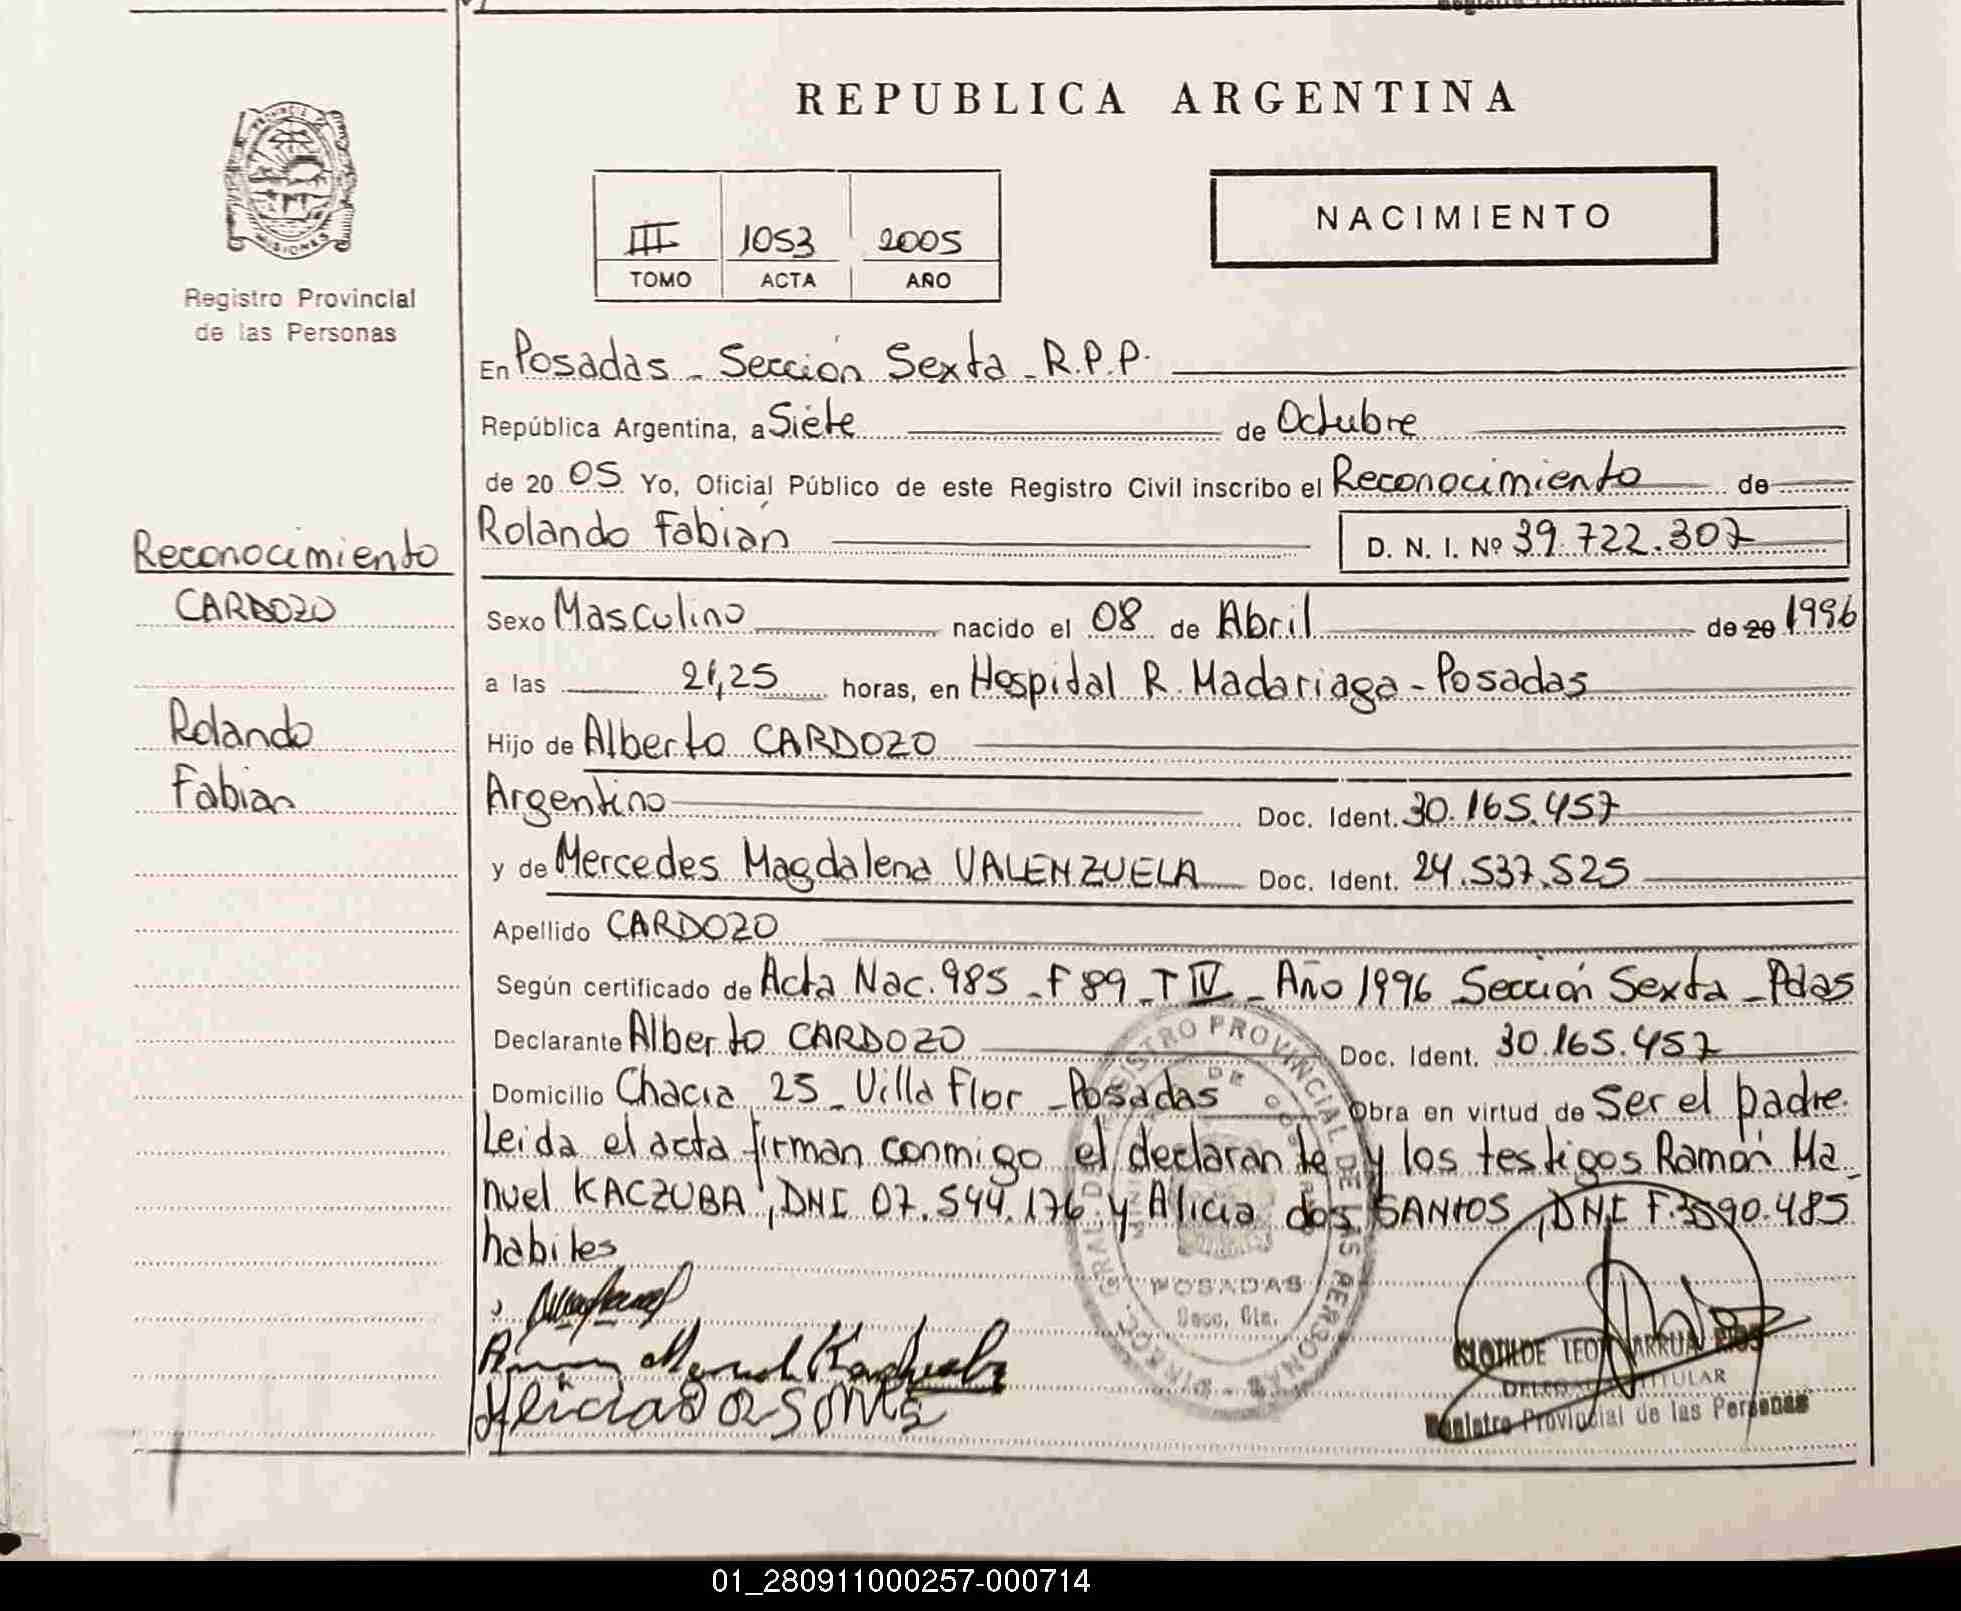 REPUBLICA ARGENTINA
NACIMIENTO
III 1053 2005
TOMO ACTA AÑO
PROVINCIA
MISIONES
Registro Provincial
de las Personas
En Posadas - Sección Sexta - R.P.P.
República Argentina, a Siete de Octubre
de 20 05 Yo, Oficial Público de este Registro Civil inscribo el Reconocimiento de
Rolando Fabián D. N. I. Nº 39.722.307
Reconocimiento
CARDOZO
Rolando
Fabian
Sexo Masculino nacido el 08 de Abril de 20 1996
a las 21,25 horas, en Hospital R. Madariaga - Posadas
Hijo de Alberto CARDOZO
Argentino Doc. Ident. 30.165.457
y de Mercedes Magdalena VALENZUELA Doc. Ident. 24.537.525
Apellido CARDOZO
Según certificado de Acta Nac. 985 - F 89 - T IV - Año 1996 Sección Sexta - Pdas
Declarante Alberto CARDOZO Doc. Ident. 30.165.457
Domicilio Chacra 25 - Villa Flor - Posadas Obra en virtud de Ser el padre.
Leida el acta firman conmigo el declarante y los testigos Ramón Ma-
nuel KACZUBA, DNI 07.544.176 y Alicia dos SANTOS, DNI F. 590.485
habiles
REGISTRO PROVINCIAL DE LAS PERSONAS
POSADAS
Secc. 6ta.
CLOTILDE TEO ARRUA RIOS
DELEGADA TITULAR
Registro Provincial de las Personas
01_280911000257-000714